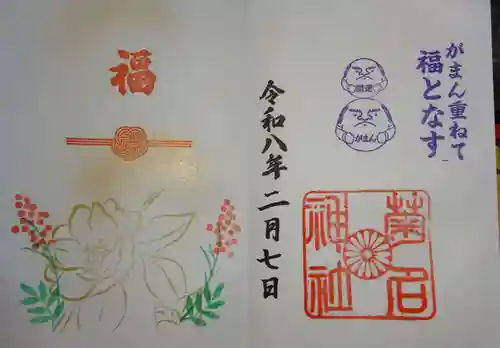 がまん重ねて
福となす
開運
がまん
令和八年二月七日
菊名
神社
福